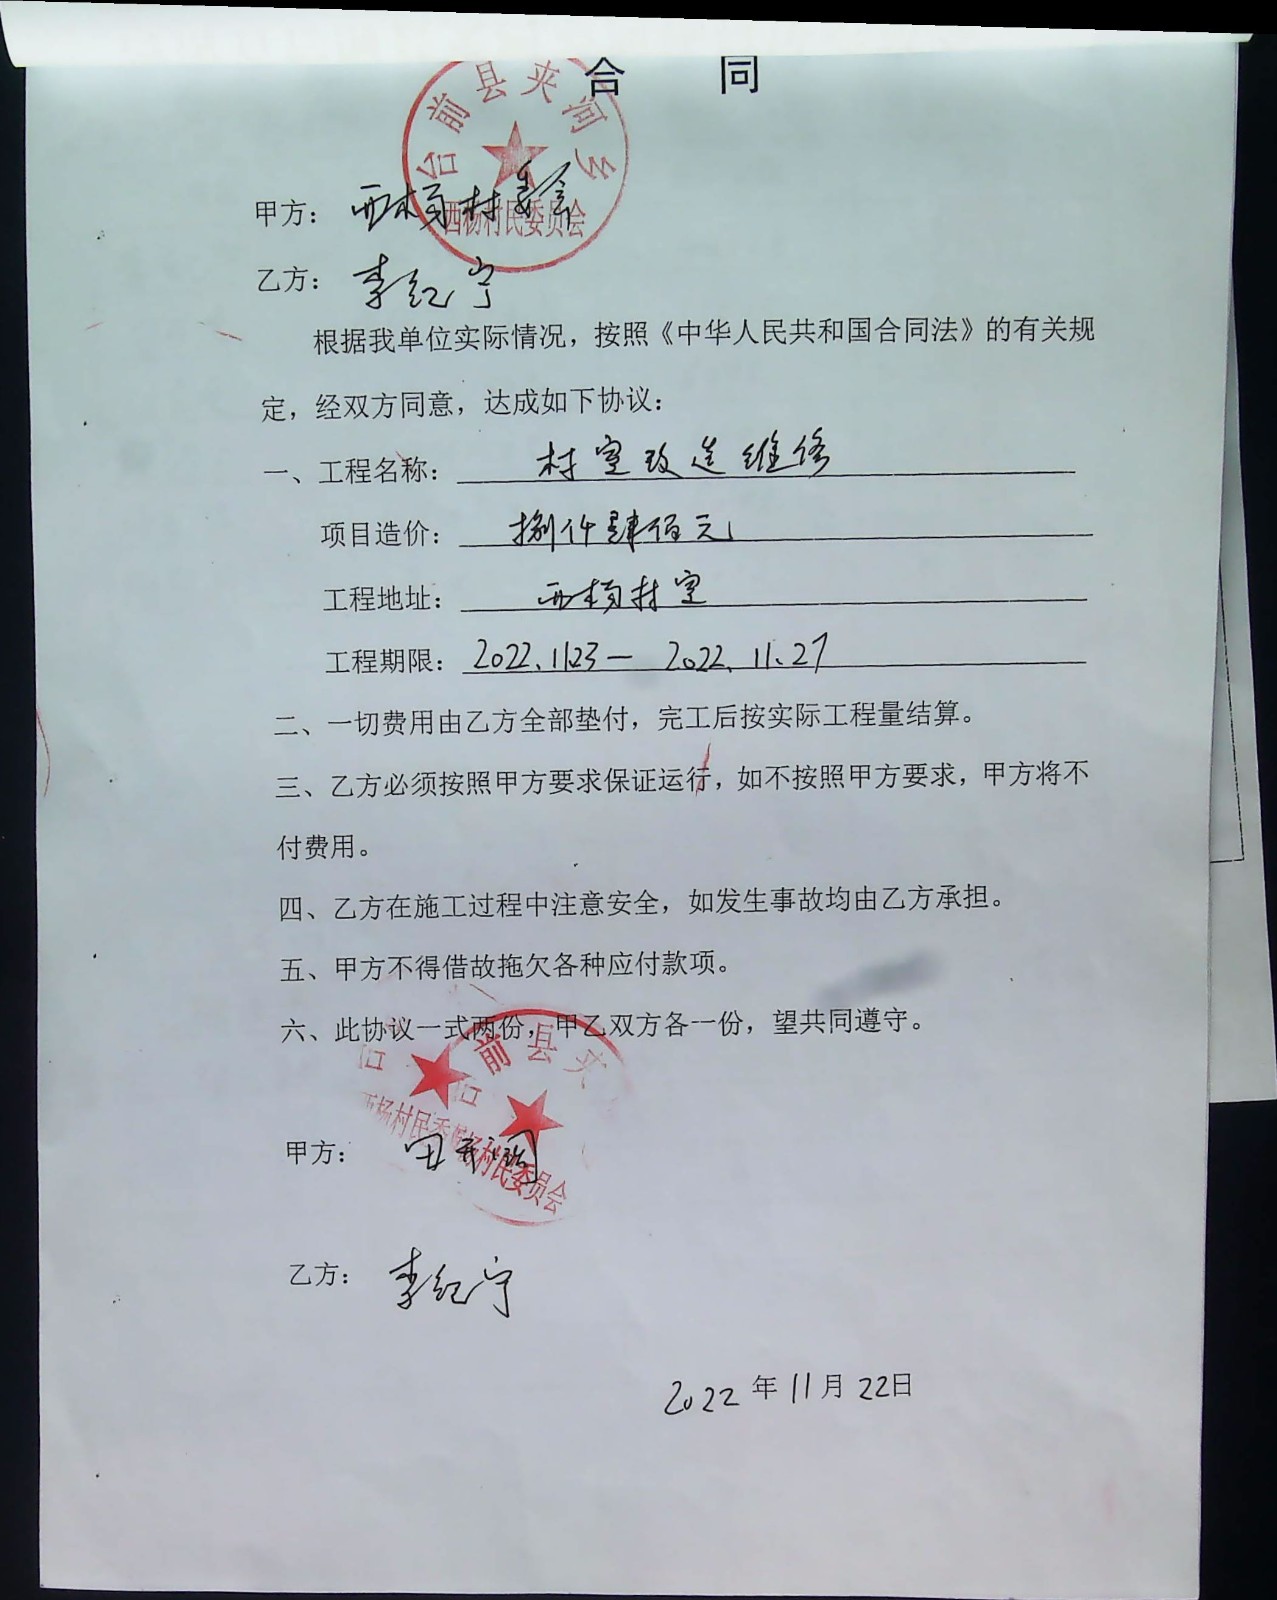 合 同
台前县夹河乡
西杨村民委员会
甲方：西杨村委会
乙方：李红宁
根据我单位实际情况，按照《中华人民共和国合同法》的有关规
定，经双方同意，达成如下协议：
一、工程名称：村室改造维修
项目造价：捌仟肆佰元
工程地址：西杨村室
工程期限：2022.1123— 2022.11.27
二、一切费用由乙方全部垫付，完工后按实际工程量结算。
三、乙方必须按照甲方要求保证运行，如不按照甲方要求，甲方将不
付费用。
四、乙方在施工过程中注意安全，如发生事故均由乙方承担。
五、甲方不得借故拖欠各种应付款项。
六、此协议一式两份，甲乙双方各一份，望共同遵守。
前县夹
台
台
西杨村民委
杨村民委员会
甲方：田
乙方：李红宁
2022年11月22日